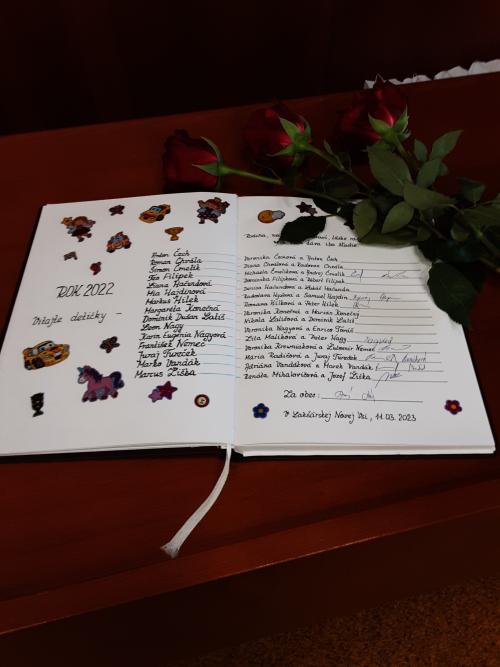 ROK 2022
Vitajte detičky -
Anton Čech
Roman Chvála
Šimon Čmelík
Filipek
Liana Hačundová
Mia Hajdinová
Markus Hílek
Margaréta Konečná
Dominik Dušan Lališ
Leon Nagy
Karin Eugénia Nagyová
František Nemec
Juraj Tureček
Marko Vandák
Marcus Žiška
Rodina,
dáva iba
Veronika Čechová a Anton Čech
Diana Chválová a Radovan Chvála
Michaela Čmelíková a Andrej Čmelík
Dominika Filipková a Filipek
Denisa Hačundová a Lukáš Hačunda
Radoslava Hyžová a Samuel Hajdin
Romana Hílková a Peter Hílek
Veronika Konečná a Marián Konečný
Nikola Lališová a Dominik Lališ
Veronika Nagyová a Enrico Tömös
Zita Malíková a Peter Nagy
Veronika Krewniaková a Ľubomír Nemec
Mária Radičová a Juraj Tureček
Adriána Vandáková a Marek Vandák
Renáta Mihalovičová a Jozef Žiška
Za obec:
V Lakšárskej Novej Vsi, 11.03.2023